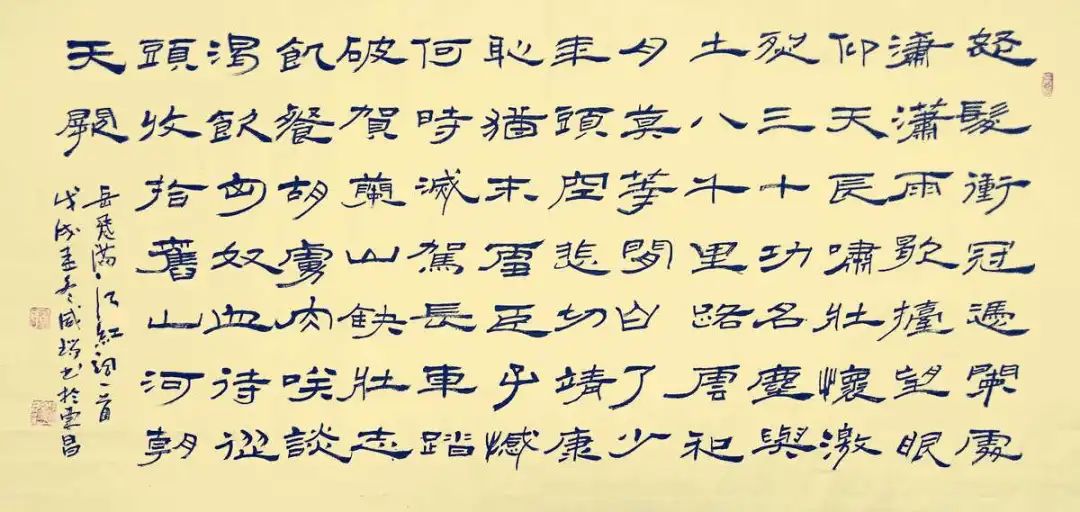 怒髮衝冠憑闌處
瀟瀟雨歇擡望眼
仰天長嘯壯懷激
烈三十功名塵與
土八千里路雲和
月莫等閒白了少
年頭空悲切靖康
恥猶未雪臣子憾
何時滅駕長車踏
破賀蘭山缺壯志
飢餐胡虜肉笑談
渴飲匈奴血待從
頭收拾舊山河朝
天闕
岳飛滿江紅詞一首
戊戌孟冬咸瑞书於昌